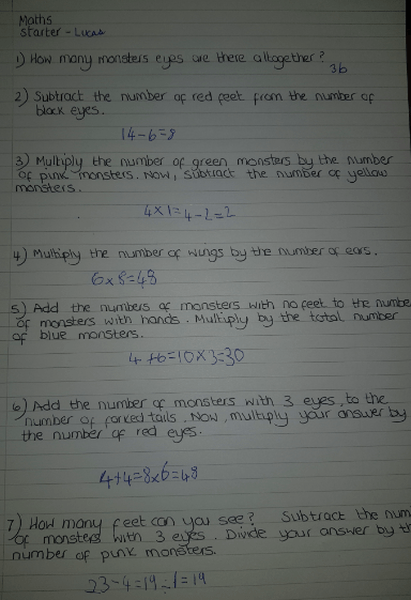 Maths
Starter - Lucas
1) How many monsters eyes are there altogether?
36
2) Subtract the number of red feet from the number of
black eyes.
14-6=8
3) Multiply the number of green monsters by the number
of pink monsters. Now, subtract the number of yellow
monsters.
4x1=4-2=2
4) Multiply the number of wings by the number of ears.
6x8=48
5) Add the numbers of monsters with no feet to the number
of monsters with hands. Multiply by the total number
of blue monsters.
4+6=10x3=30
6) Add the number of monsters with 3 eyes, to the
number of forked tails. Now, multiply your answer by
the number of red eyes.
4+4=8x6=48
7) How many feet can you see? Subtract the num
of monsters with 3 eyes. Divide your answer by th
number of punk monsters.
23-4=19÷1=19